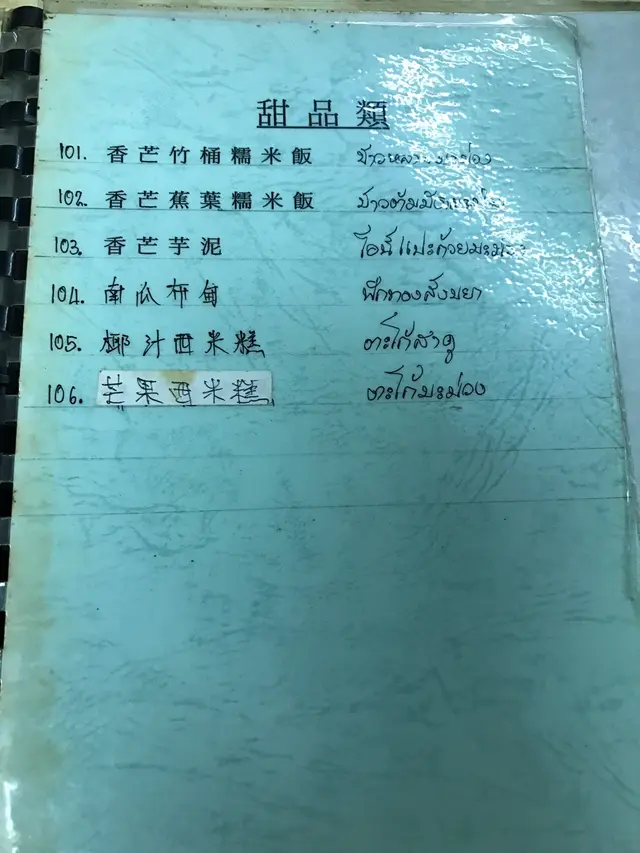 甜品類
101. 香芒竹桶糯米飯 ข้าวหลาม
102. 香芒蕉葉糯米飯 ข้าวต้มมัด
103. 香芒芋泥
104. 南瓜布甸 ฟักทองสังขยา
105. 椰汁西米糕 ตะโก้สาคู
106. 芒果西米糕 ตะโก้มะม่วง